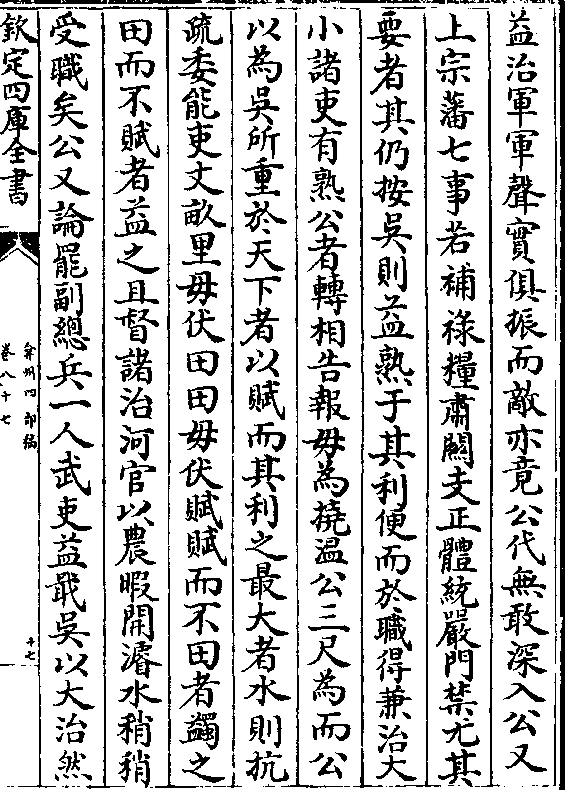 益治軍軍聲實俱振而敵亦竟公代無敢深入公又
上宗藩七事若補祿糧肅閹支正體統嚴門禁尤其
要者其仍按吳則益熟于其利便而於職得兼治大
小諸吏有熟公者轉相告報毋為撓温公三尺為而公
以為吳所重於天下者以賦而其利之最大者水則抗
疏委能吏丈畝里毋伏田田毋伏賦賦而不田者蠲之
田而不賦者益之且督諸治河官以農暇開濬水稍稍
受職矣公又論罷副總兵一人武吏益戢吳以大治然
欽定四庫全書
弇州四部稿
卷八十七
十七